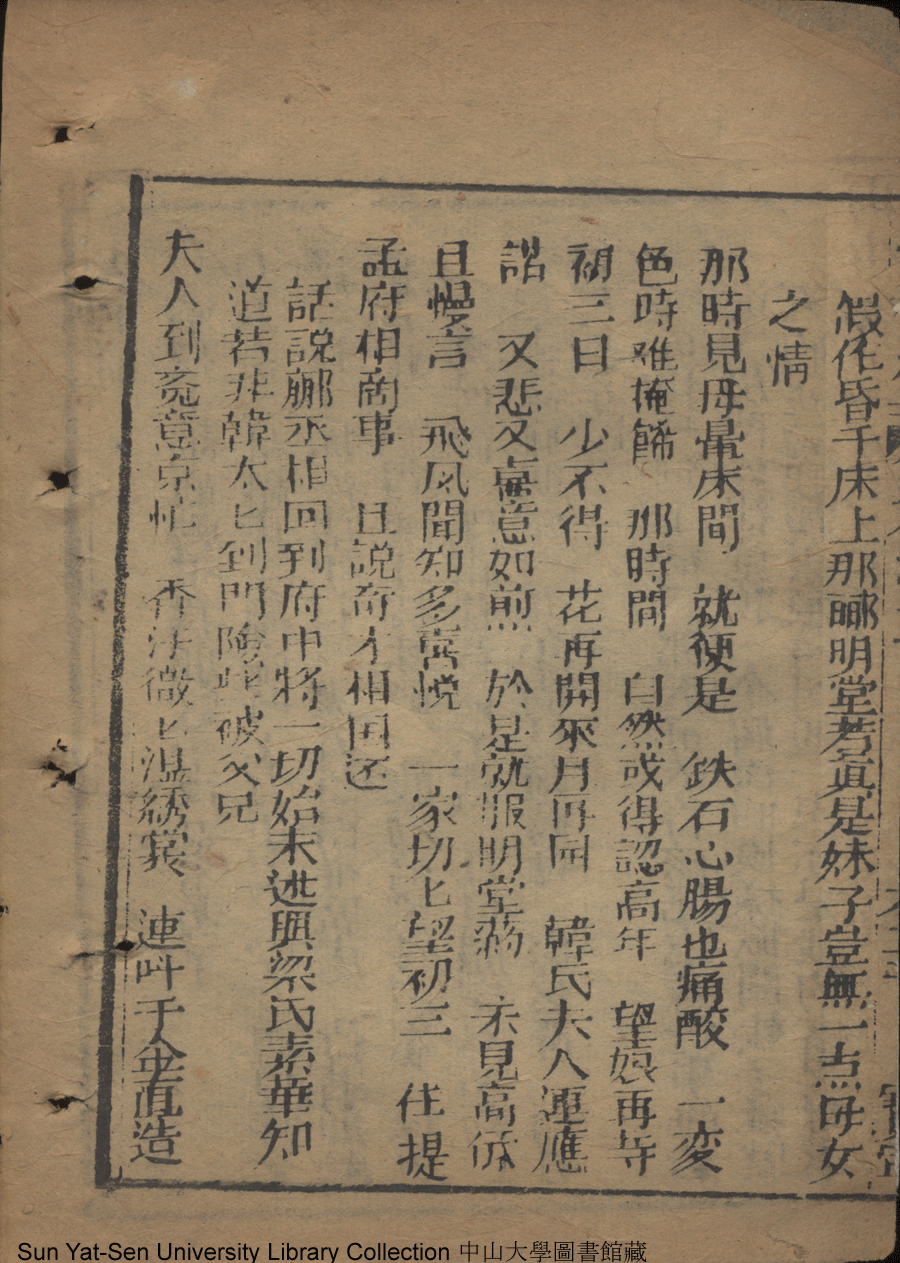 假作昏千床上那酈明堂若真是妹子豈無一点母女
之情
那時見母暈床間 就便是 鉄石心腸也痛酸 一变
色時难掩餙 那時間 自然或得認高年 望娘再等
初三日 少不得 花再開來月再圓 韓氏夫人連應
諾 又悲又喜意如煎 於是就服明堂葯 未見高低
且慢言 飛风聞知多喜悦 一家切匕望初三 住提
孟府相商事 且說奇才相国还
話說酈丞相回到府中將一切始末述與梁氏素華知
道若非韓太匕到門險些被父兄
夫人到來意京忙 香汗微匕湿綉裳 連叫千金直造
Sun Yat-Sen University Library Collection 中山大學圖書館藏